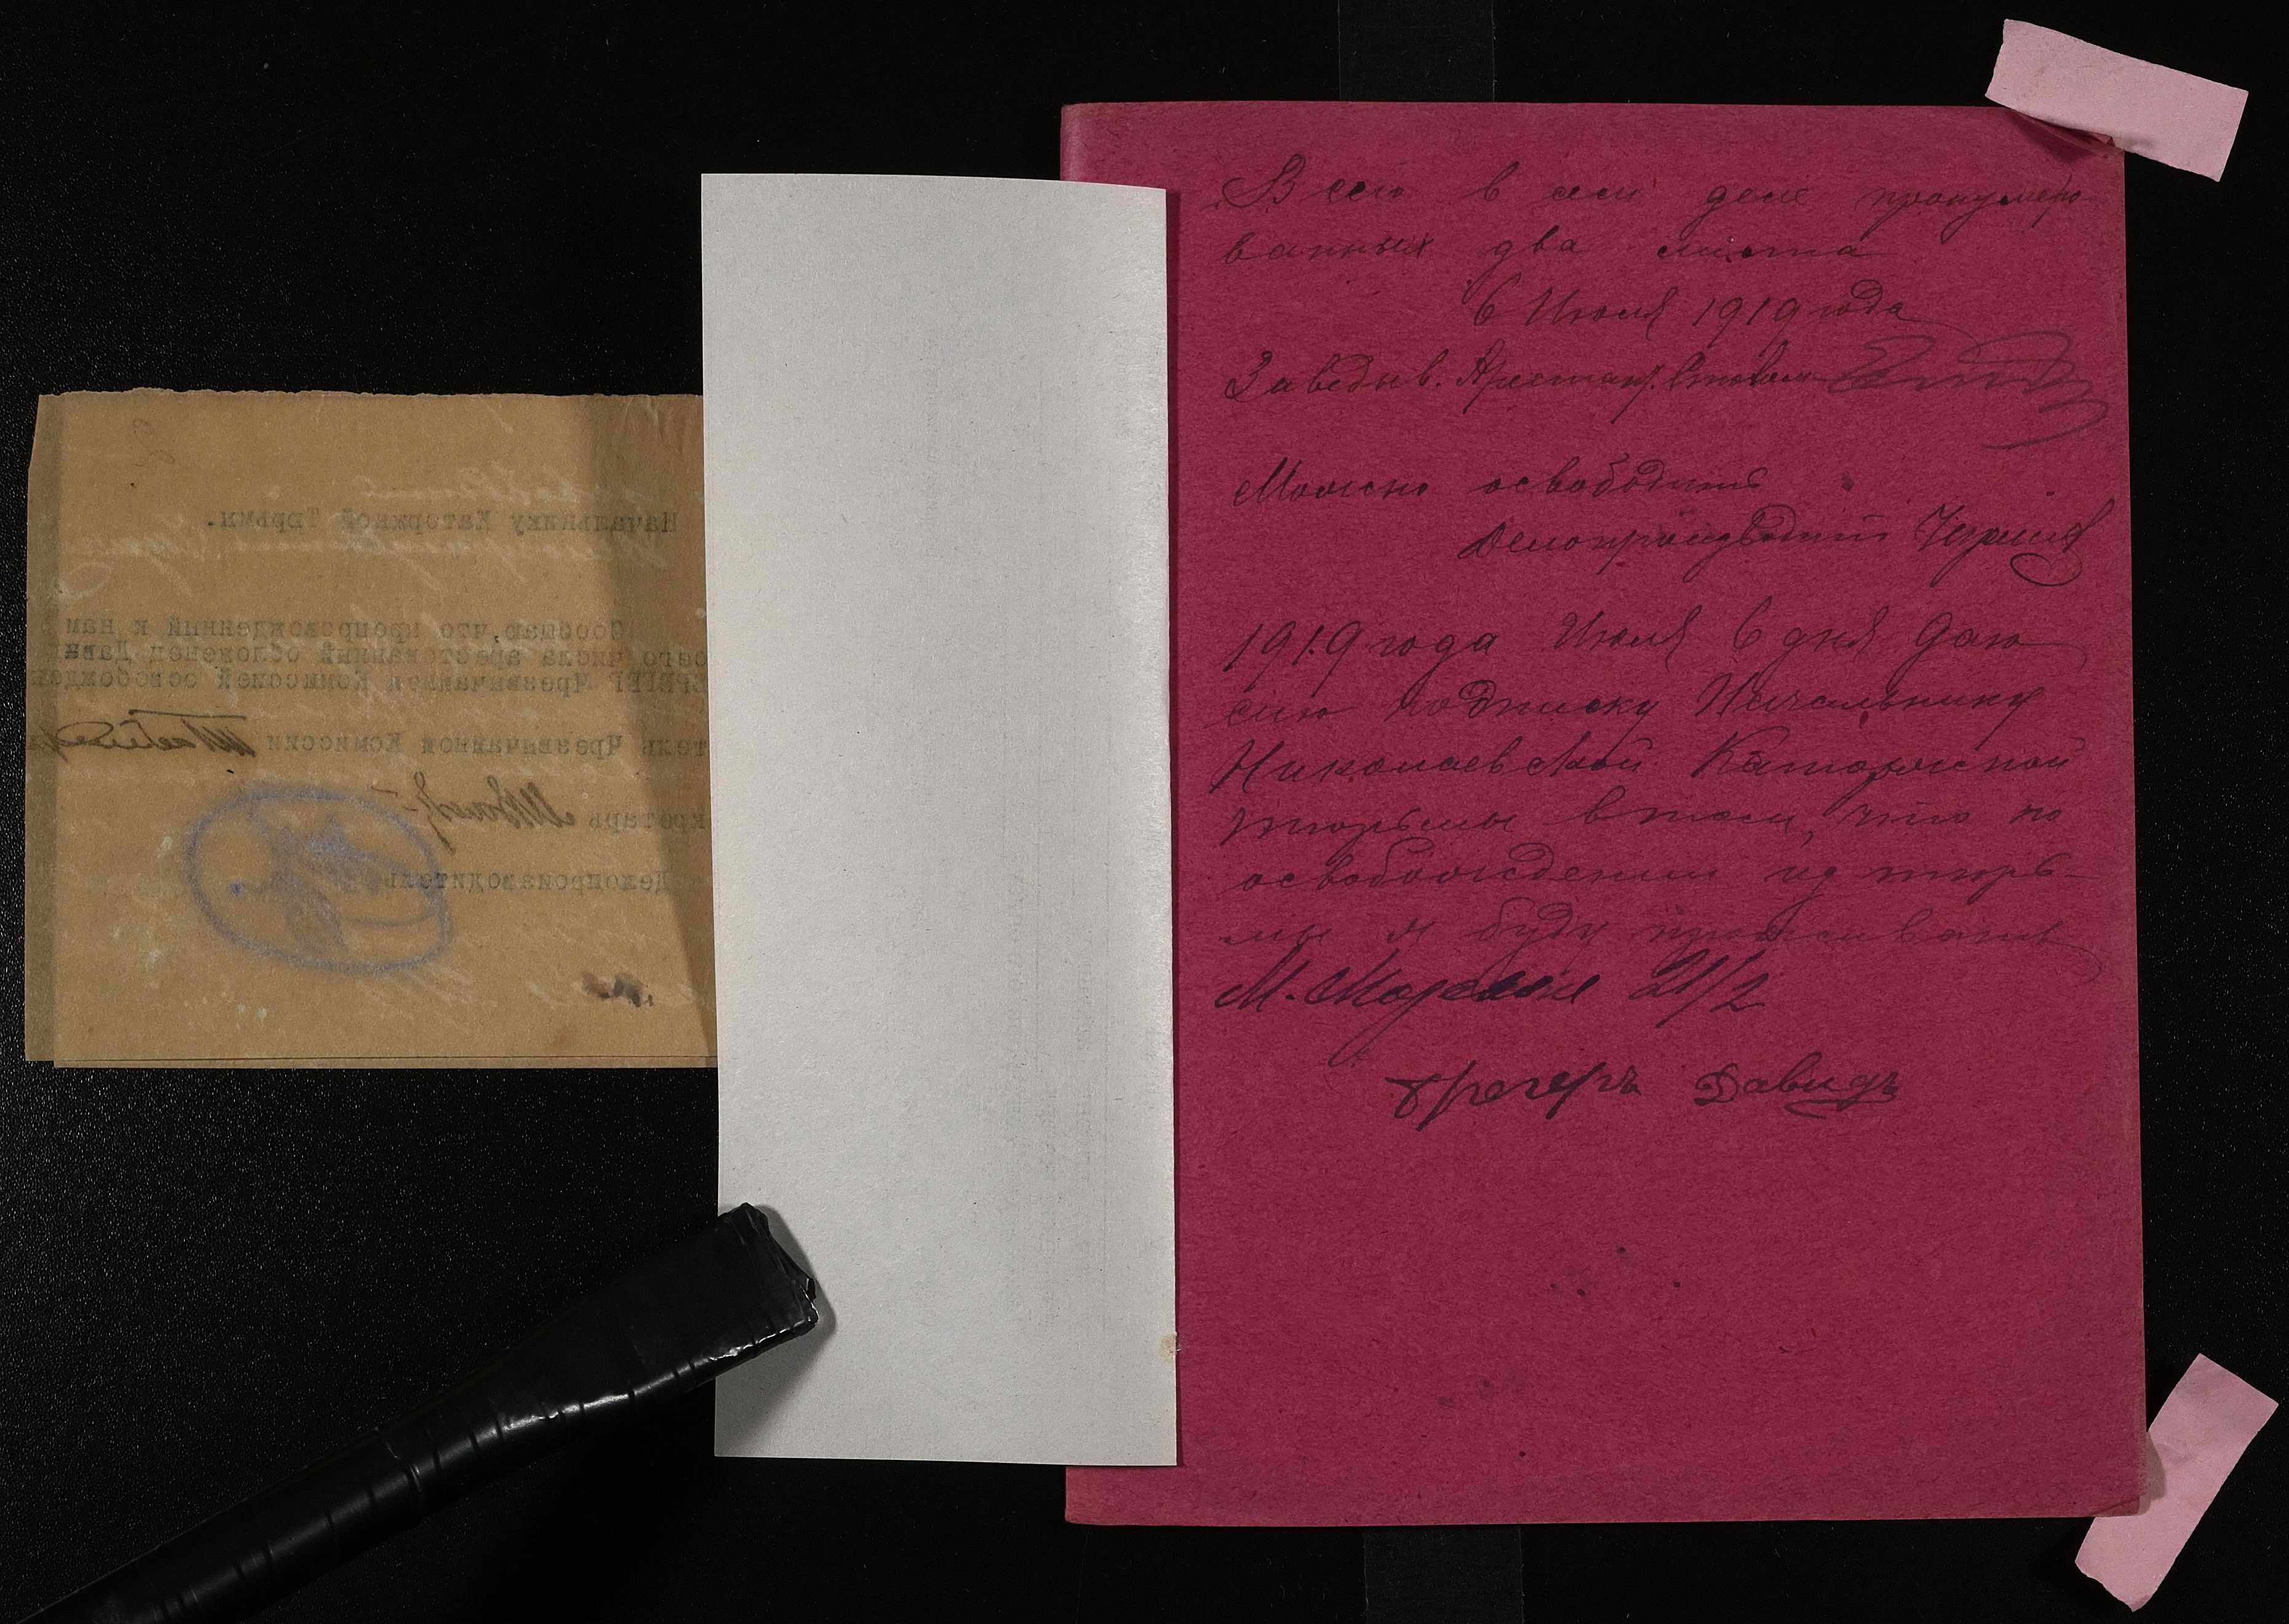 Начальнику Каторжной Тюрьмы.
Сообщаю, что препровожденный к нам
всего числа арестованный обложенец Дави
ЕРЕГЕР Чрезвычайной Комиссией освобожден
тель Чрезвычайной Комиссии
кретарь
Делопроизводитель
Всего в сем деле пронумеро
ванных два листа
6 Июля 1919 года
Заведыв. Арестант. Столом
Можно освободить
Делопроизводитель
1919 года Июля 6 дня даю
сию подписку Начальнику
Николаевской Каторжной
тюрьмы в том, что по
освобождении из тюрь-
мы я буду проживать
М. Морская 21/2
Грегеръ Давидъ